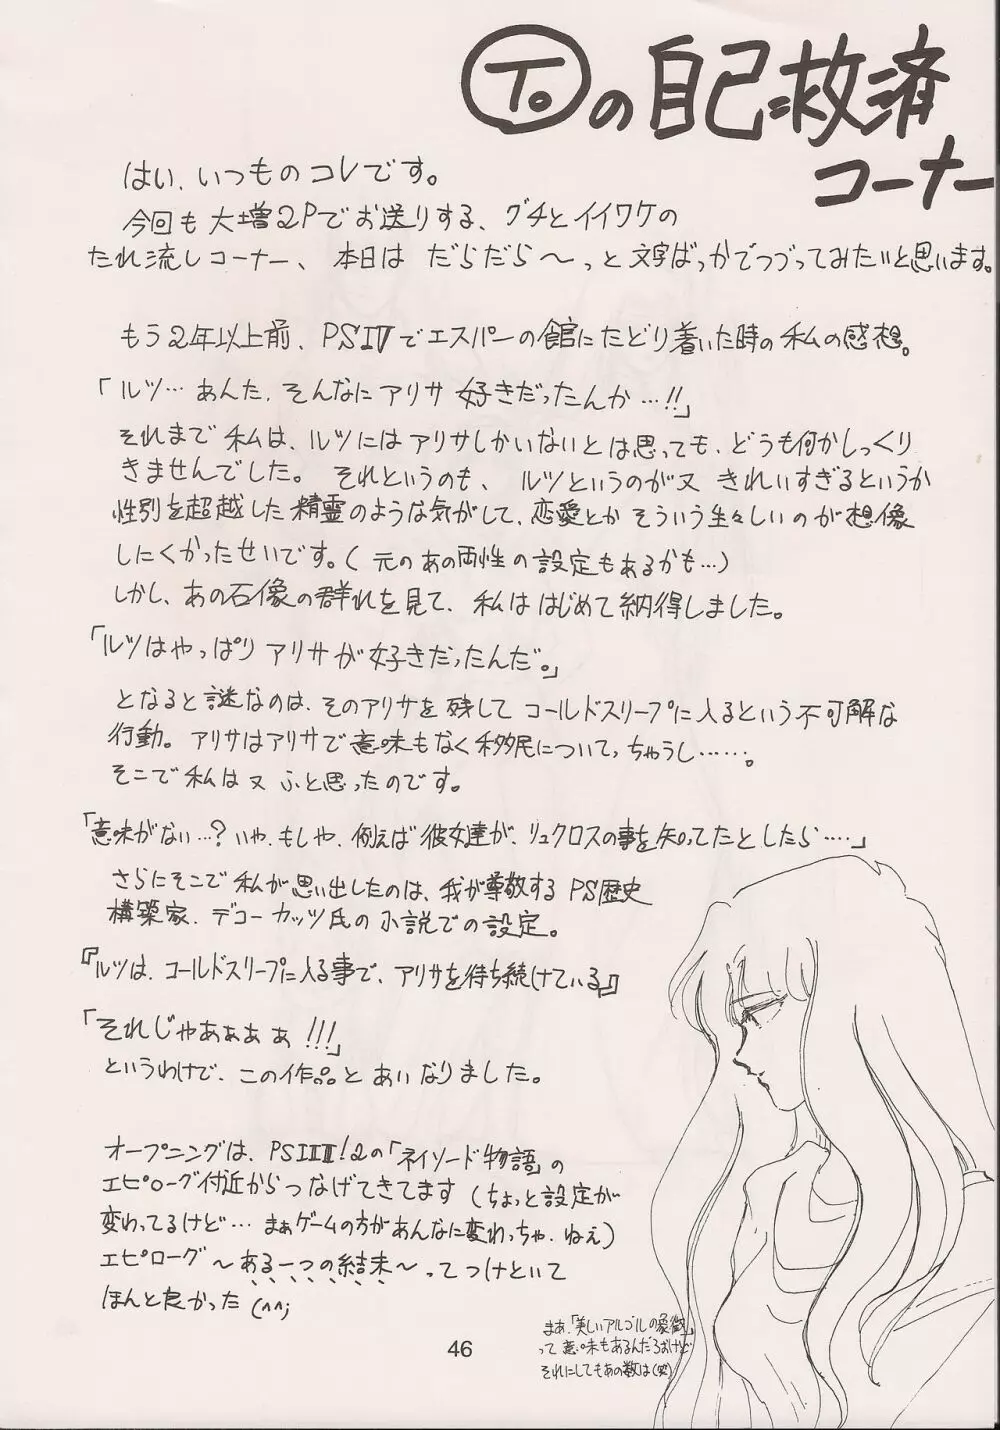 Toの自己救済
コーナー
はい、いつものコレです。
今回も大増2Pでお送りする、グチとイイワケの
たれ流しコーナー、本日は だらだら～っと文字ばっかでつづってみたいと思います。
もう2年以上前、PSⅣでエスパーの館にたどり着いた時の私の感想。
「ルツ…あんた、そんなにアリサ好きだったんか…!!」
それまで私は、ルツにはアリサしかいないとは思っても、どうも何かしっくり
きませんでした。それというのも、ルツというのが又きれいすぎるというか
性別を超越した精霊のような気がして、恋愛とかそういう生々しいのが想像
しにくかったせいです。(元のあの両性の設定もあるかも…)
しかし、あの石像の群れを見て、私ははじめて納得しました。
「ルツはやっぱりアリサが好きだったんだ。」
となると謎なのは、そのアリサを残してコールドスリープに入るという不可解な
行動。アリサはアリサで意味もなく移民についてっちゃうし……。
そこで私は又ふと思ったのです。
「意味がない…?いや、もしや、例えば彼女達が、リュクロスの事を知ってたとしたら……」
さらにそこで私が思い出したのは、我が尊敬するPS歴史
構築家、デコーカッツ氏の小説での設定。
『ルツは、コールドスリープに入る事で、アリサを待ち続けている』
「それじゃあぁぁぁ!!!」
というわけで、この作品とあいなりました。
オープニングは、PSIIIⅡ!2の「ネイソード物語」の
エピローグ付近からつなげてきてます(ちょっと設定が
変わってるけど…まぁゲームの方があんなに変わっちゃ、ねぇ)
エピローグ～ある一つの結末～ってつけといて
ほんと良かった(^^;
まあ、「美しいアルゴルの象徴」
って意味もあるんだろおけど
それにしてもあの数は(笑)
46